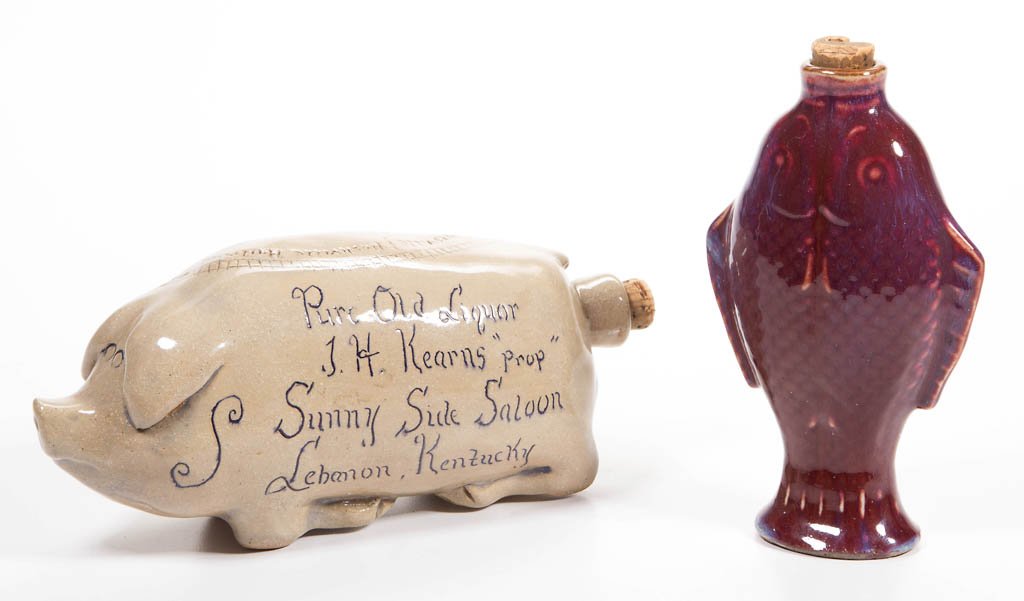 Pure Old Liquor
J. H. Kearns "prop"
Sunny Side Saloon
Lebanon, Kentucky